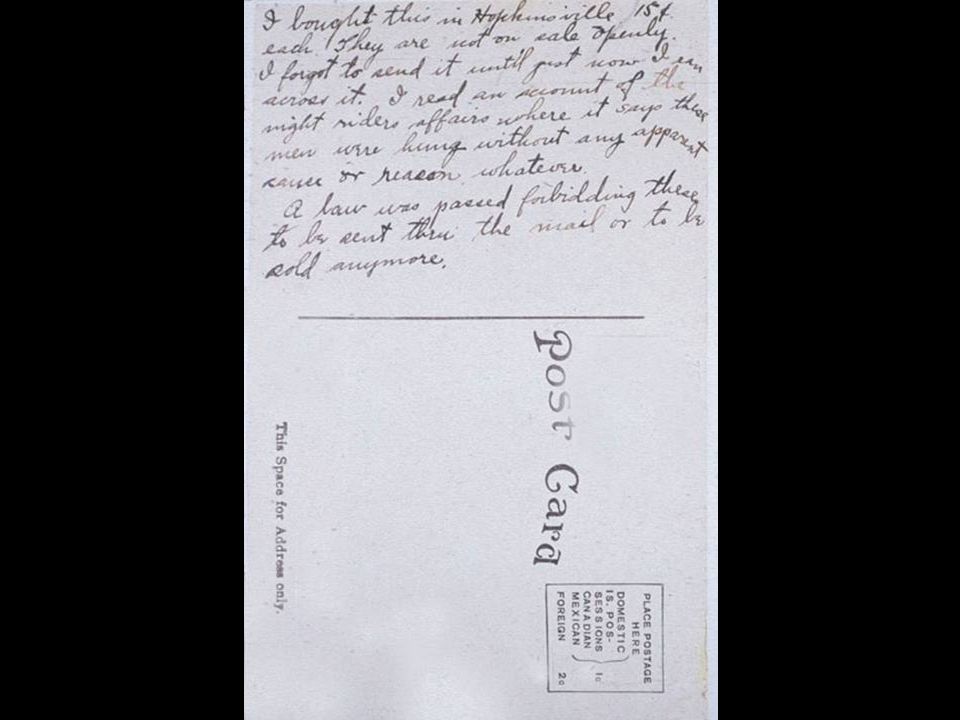 I bought this in Hopkinsville 15¢
each. They are not on sale openly.
I forgot to send it until just now I ran
across it. I read an account of the
night riders affairs where it says these
men were hung without any apparent
cause or reason whatever.
A law was passed forbidding these
to be sent thru the mail or to be
sold anymore.
Post Card
This Space for Address only.
PLACE POSTAGE
HERE
DOMESTIC
IS. POS-
SESSIONS
CANADIAN
MEXICAN
1c
FOREIGN 2c